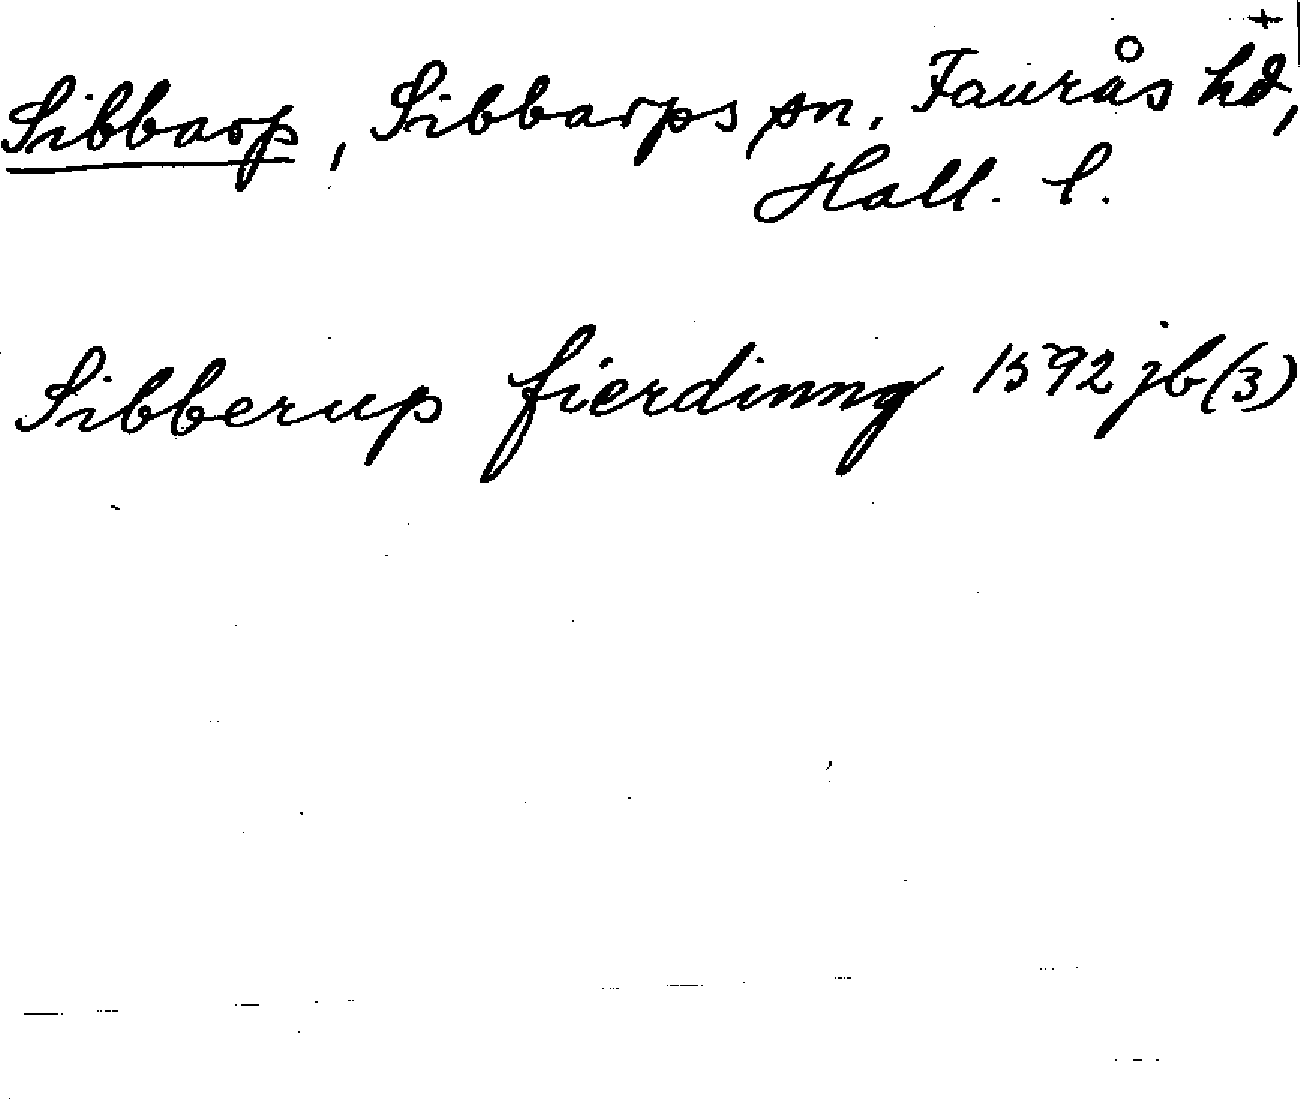 +
Sibbarp, Sibbarps sn, Faurås hd,
Hall. l.
Sibberup fierdinng 1592 jb (3)